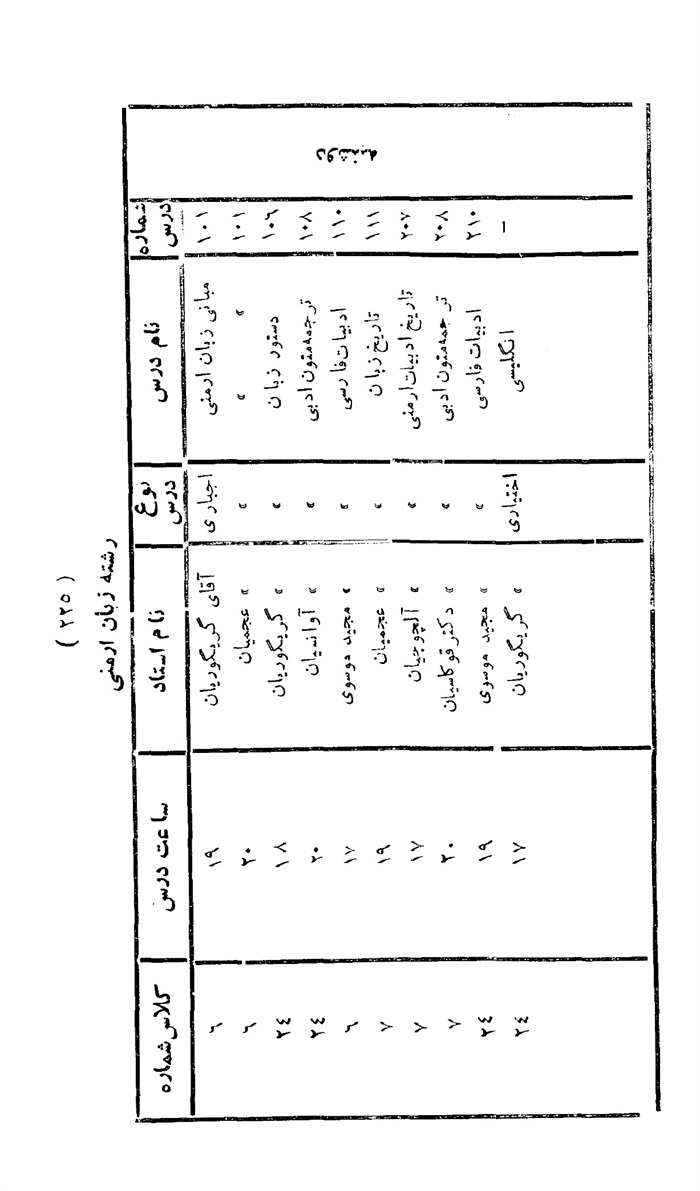 (۲۲۵)
رشته زبان ارمنی
دوشنبه
شماره درس نام درس نوع درس نام استاد ساعت درس کلاس شماره
۱۰۱ مبانی زبان ارمنی اجباری آقای گریگوریان ۱۹ ۶
۱۰۱ » » » » عجمیان ۲۰ ۶
۱۰۶ دستور زبان » » گریگوریان ۱۸ ۲۴
۱۰۸ ترجمه متون ادبی » » آوانسیان ۲۰ ۲۴
۱۱۰ ادبیات فارسی » » مجید موسوی ۱۷ ۶
۱۱۱ تاریخ زبان » » عجمیان ۱۹ ۷
۲۰۷ تاریخ ادبیات ارمنی » » آلچوجیان ۱۷ ۷
۲۰۸ ترجمه متون ادبی » » دکتر قوکاسیان ۲۰ ۷
۲۱۰ ادبیات فارسی » » مجید موسوی ۱۹ ۲۴
— انگلیسی اختیاری » گریگوریان ۱۷ ۲۴